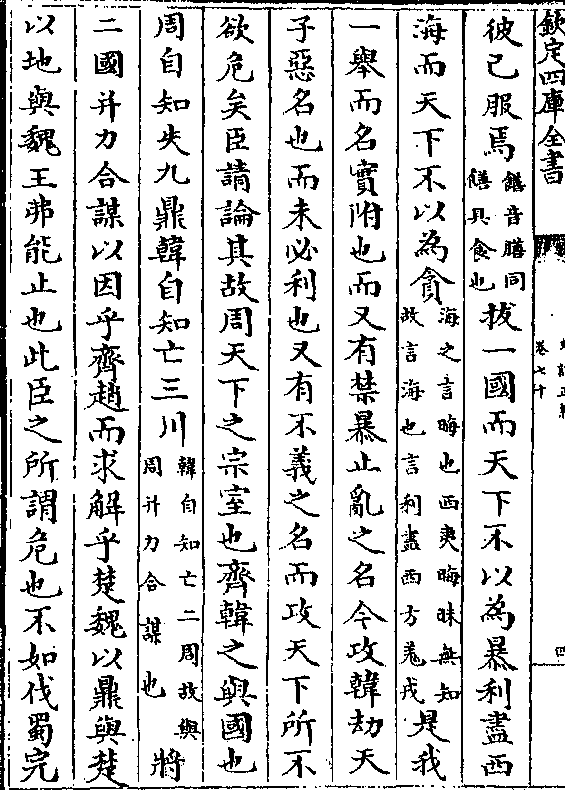 欽定四庫全書
卷七十
彼已服焉饍音膳同饍具食也拔一國而天下不以為暴利盡西
海而天下不以為貪海之言晦也西夷晦昧無知故言海也言利盡西方羌戎是我
一舉而名實附也而又有禁暴止亂之名今攻韓劫天
子惡名也而未必利也又有不義之名而攻天下所不
欲危矣臣請論其故周天下之宗室也齊韓之與國也
周自知失九鼎韓自知亡三川韓自知亡二周故與周并力合謀也將
二國并力合謀以因乎齊趙而求解乎楚魏以鼎與楚
以地與魏王弗能止也此臣之所謂危也不如伐蜀完